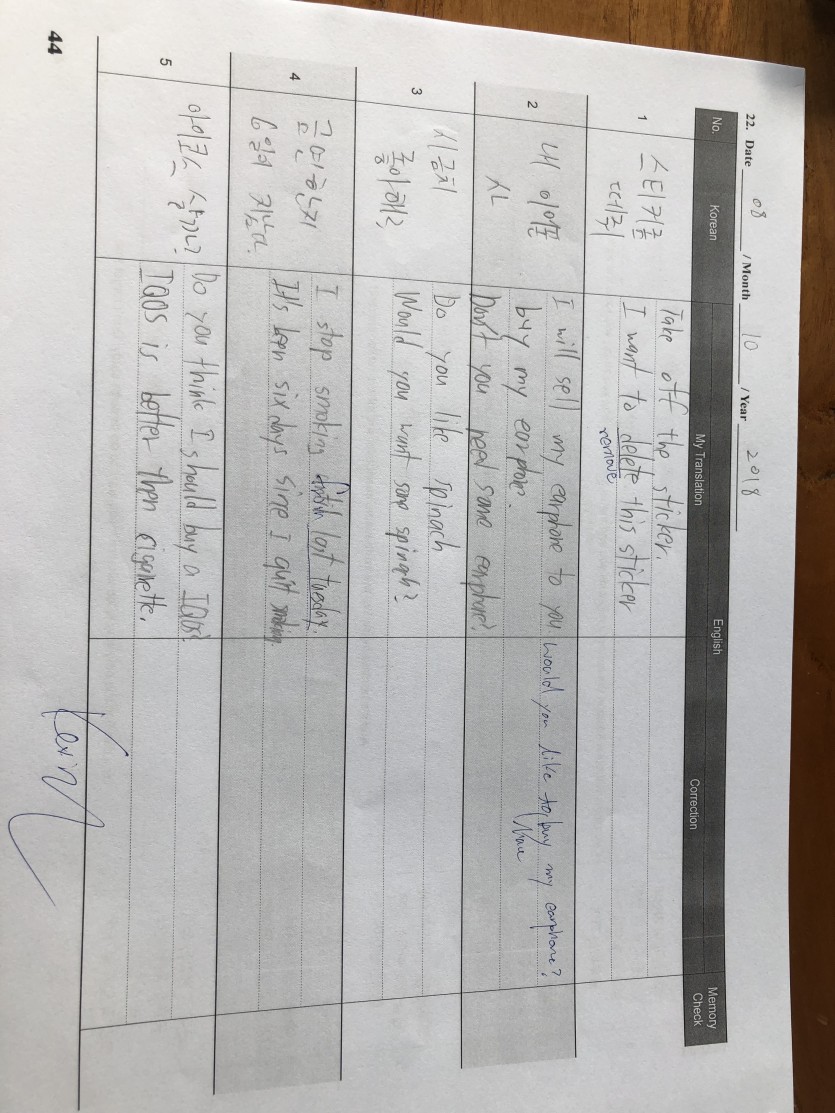 22. Date 08 / Month 10 / Year 2018
No. Korean English Memory Check
My Translation Correction
1
스티커좀
떼줘
Take off the sticker.
I want to delete this sticker
remove
2
내 이어폰
사
I will sell my earphone to you
buy my earphone.
Don't you need some earphone?
would you like to buy my earphone?
have
3
시금치
좋아해?
Do you like spinach
Would you want some spinach?
4
금연한지
6일이 지났다.
I stop smoking last tuesday.
It's been six days since I quit smoking
5
아이코스 살까?
Do you think I should buy a IQOS?
IQOS is better then cigarette.
Kevin
44